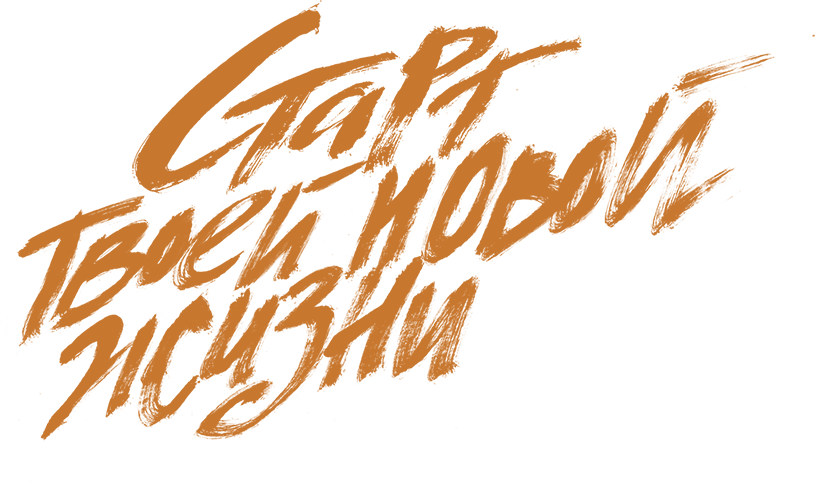 Старт
твоей новой
жизни